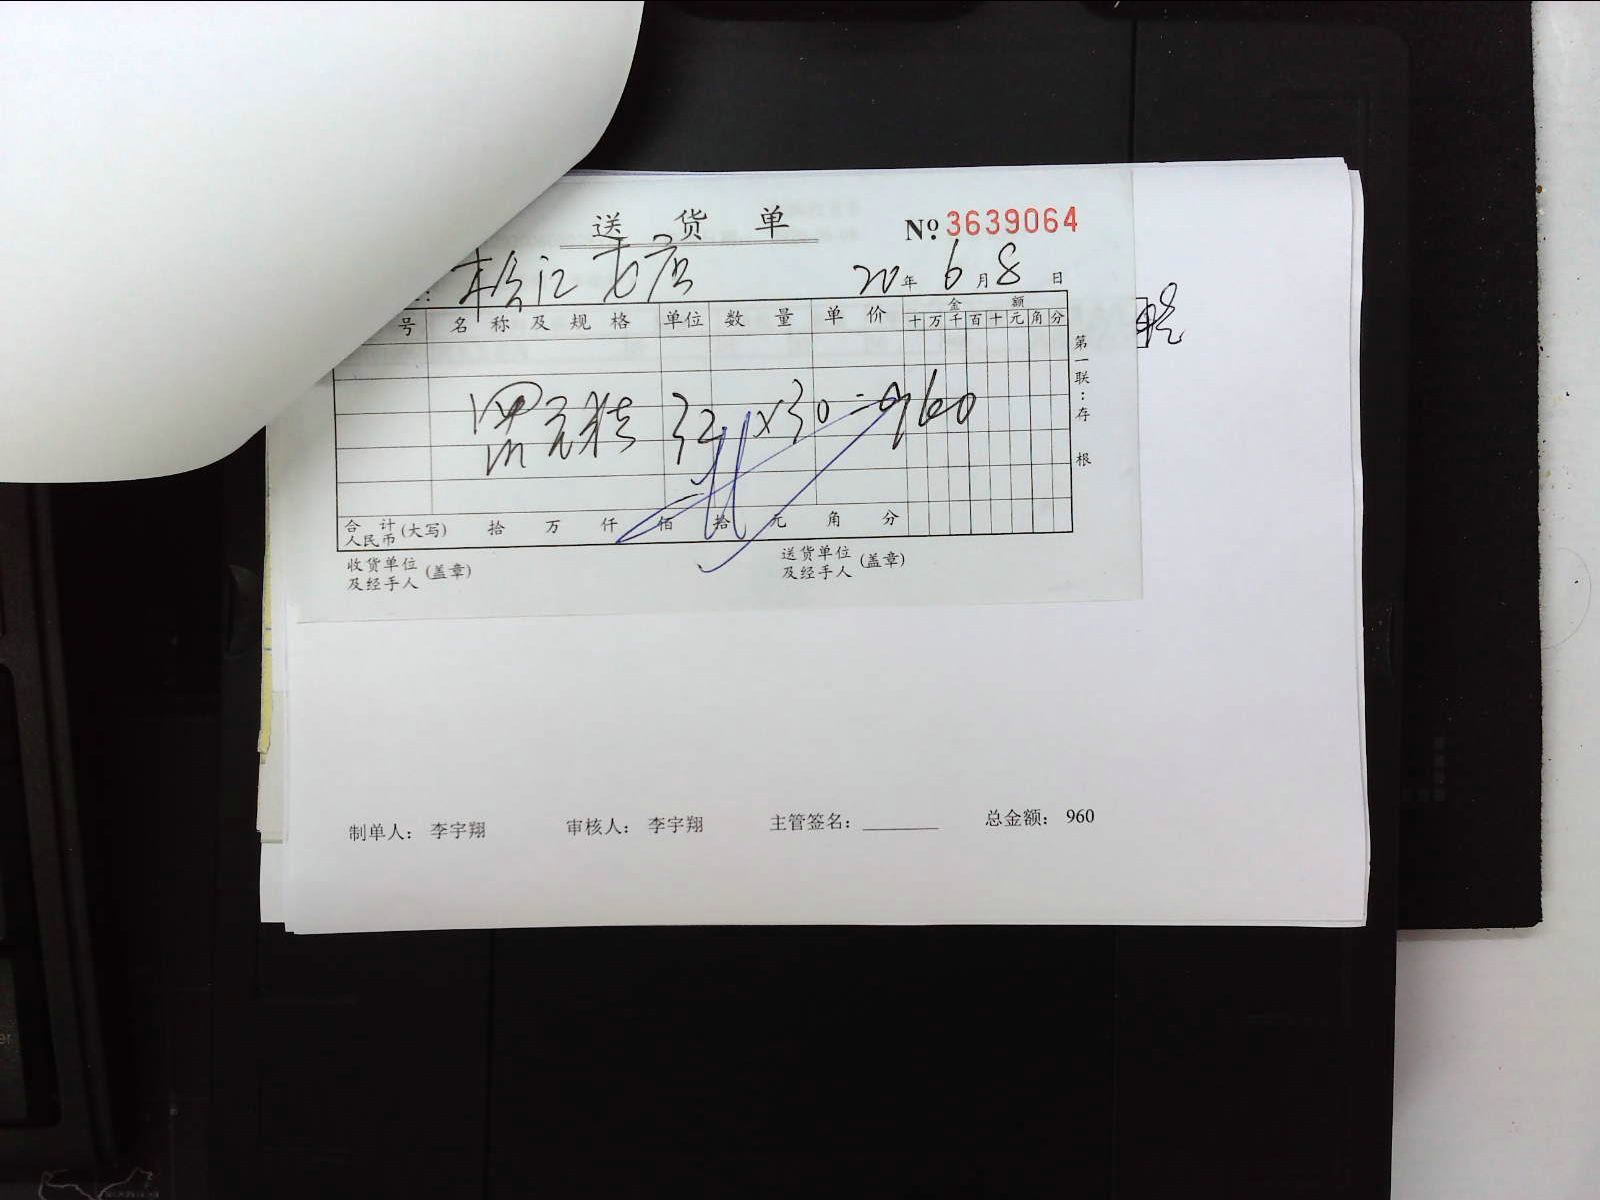 送货单 № 3639064
松江老店 20年6月8日
号 名称及规格 单位 数量 单价 金额
十万千百十元角分
第一联：存根
黑元襟 32 × 30 = 960
合计人民币(大写) 拾 万 仟 佰 拾 元 角 分
收货单位及经手人(盖章) 送货单位及经手人(盖章)
制单人： 李宇翔 审核人： 李宇翔 主管签名：_______ 总金额： 960